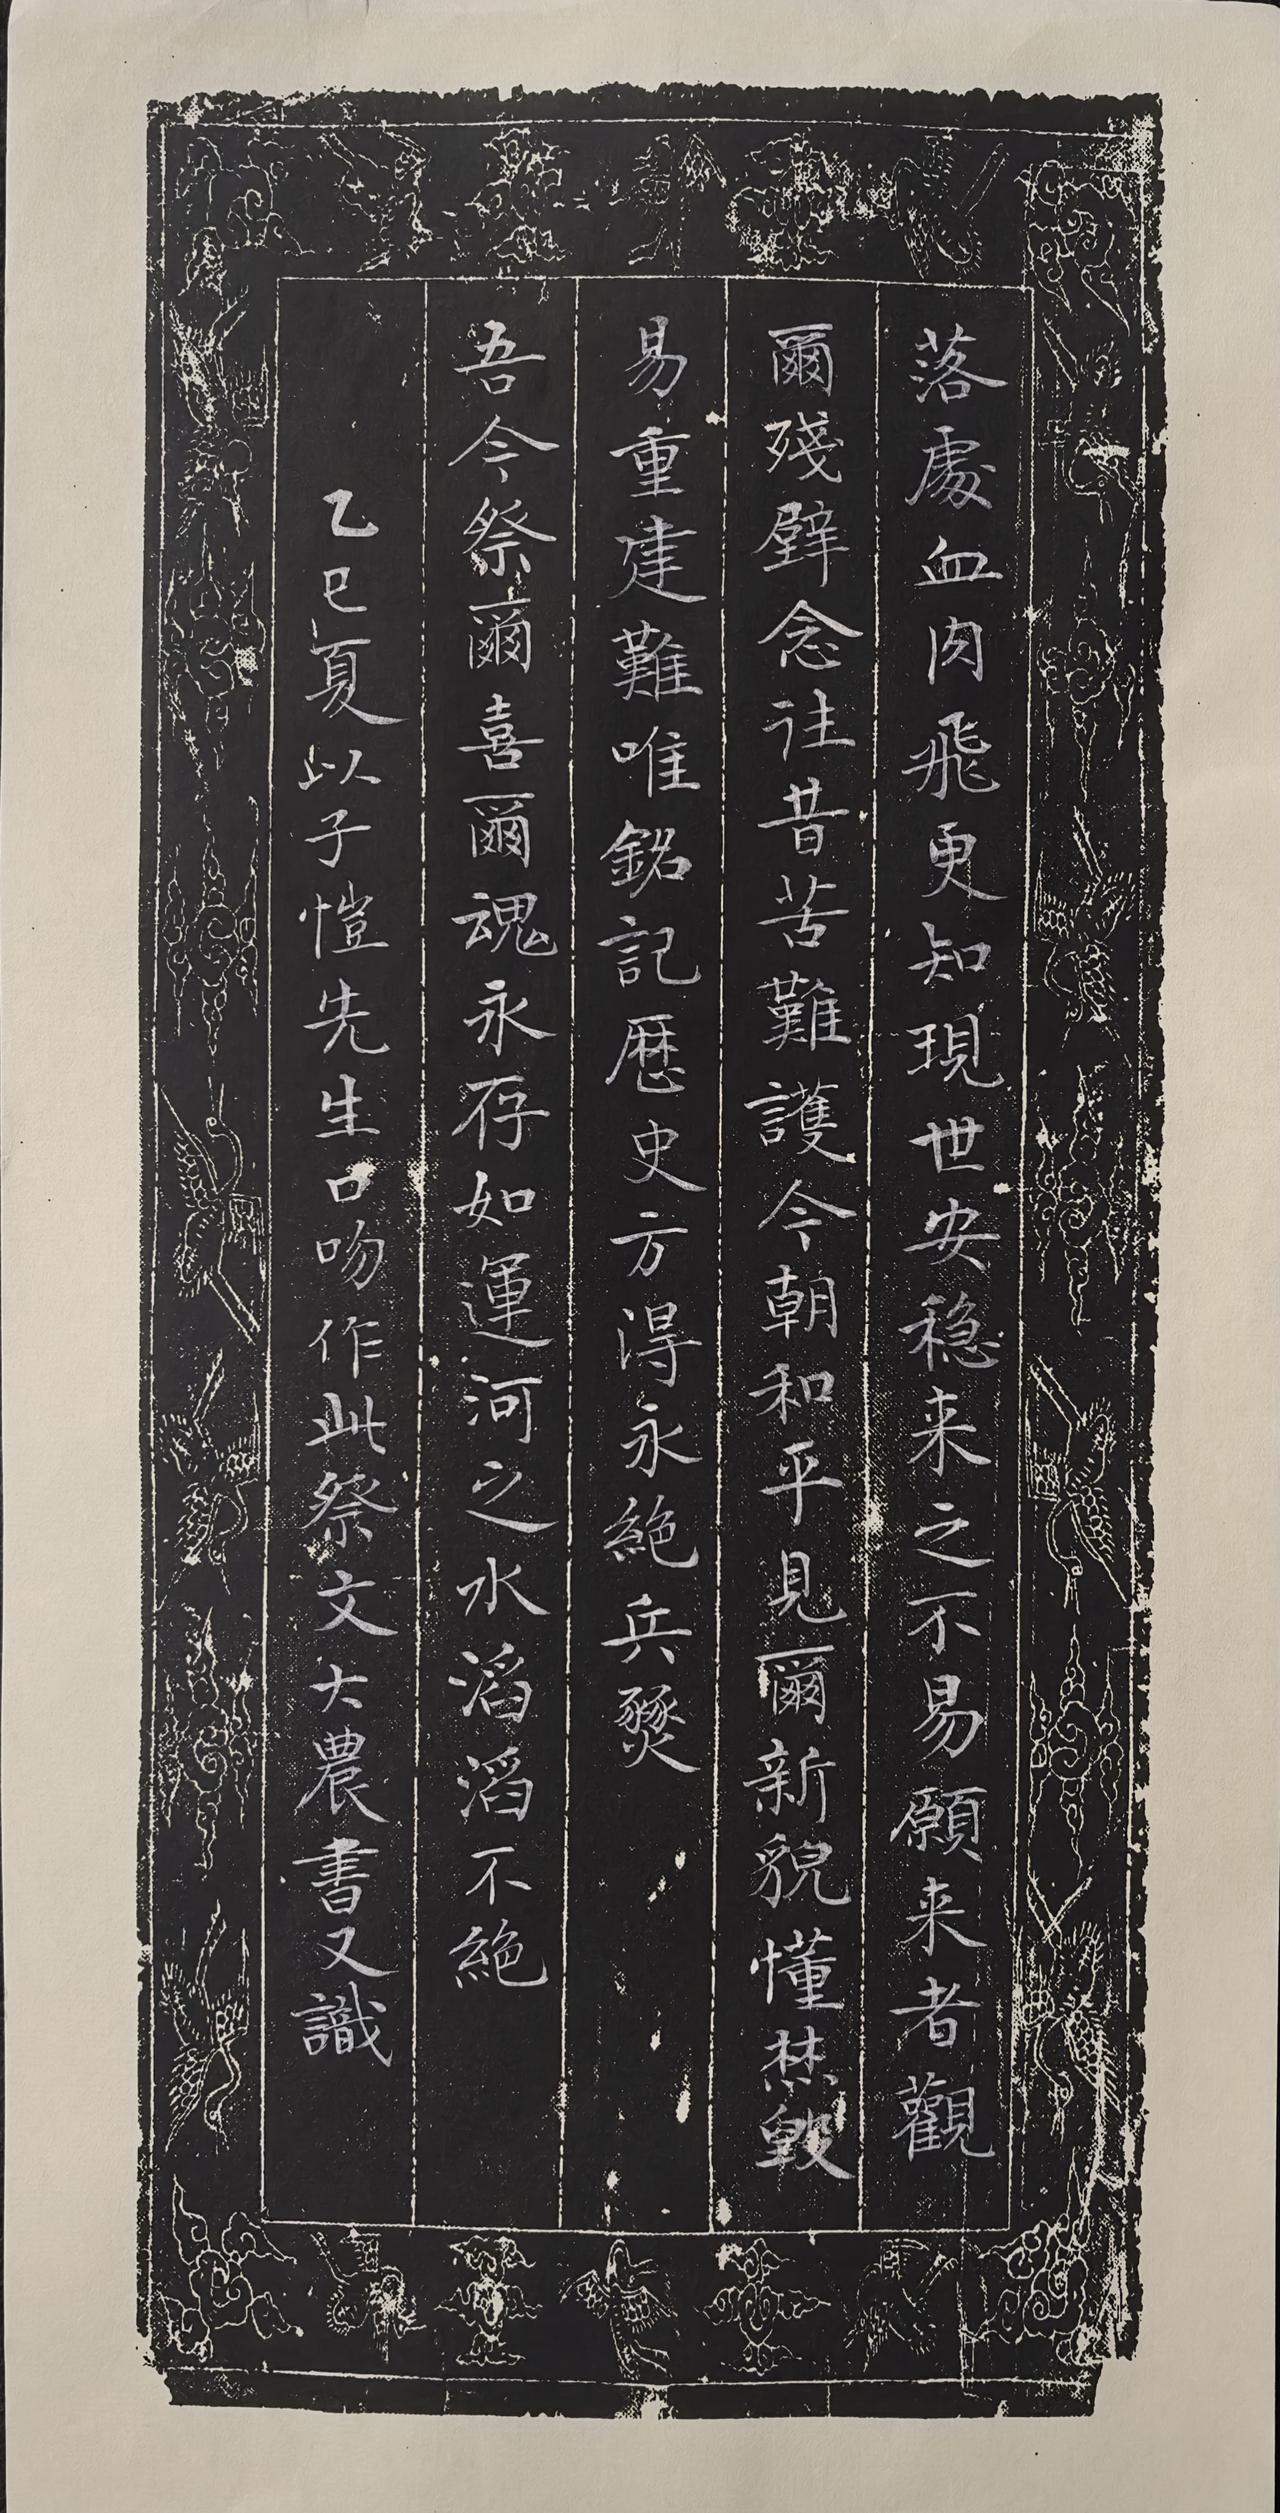 落處血肉飛更知現世安稳来之不易願来者觀
爾殘壁念往昔苦難護今朝和平見爾新貌懂焚毀
易重建難唯銘記歷史方得永絶兵燹
吾今祭爾喜爾魂永存如運河之水滔滔不絶
乙巳夏以子愷先生口吻作此祭文大農書又識